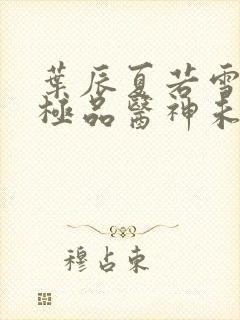 葉辰夏若雪
極品醫神未
穆占東